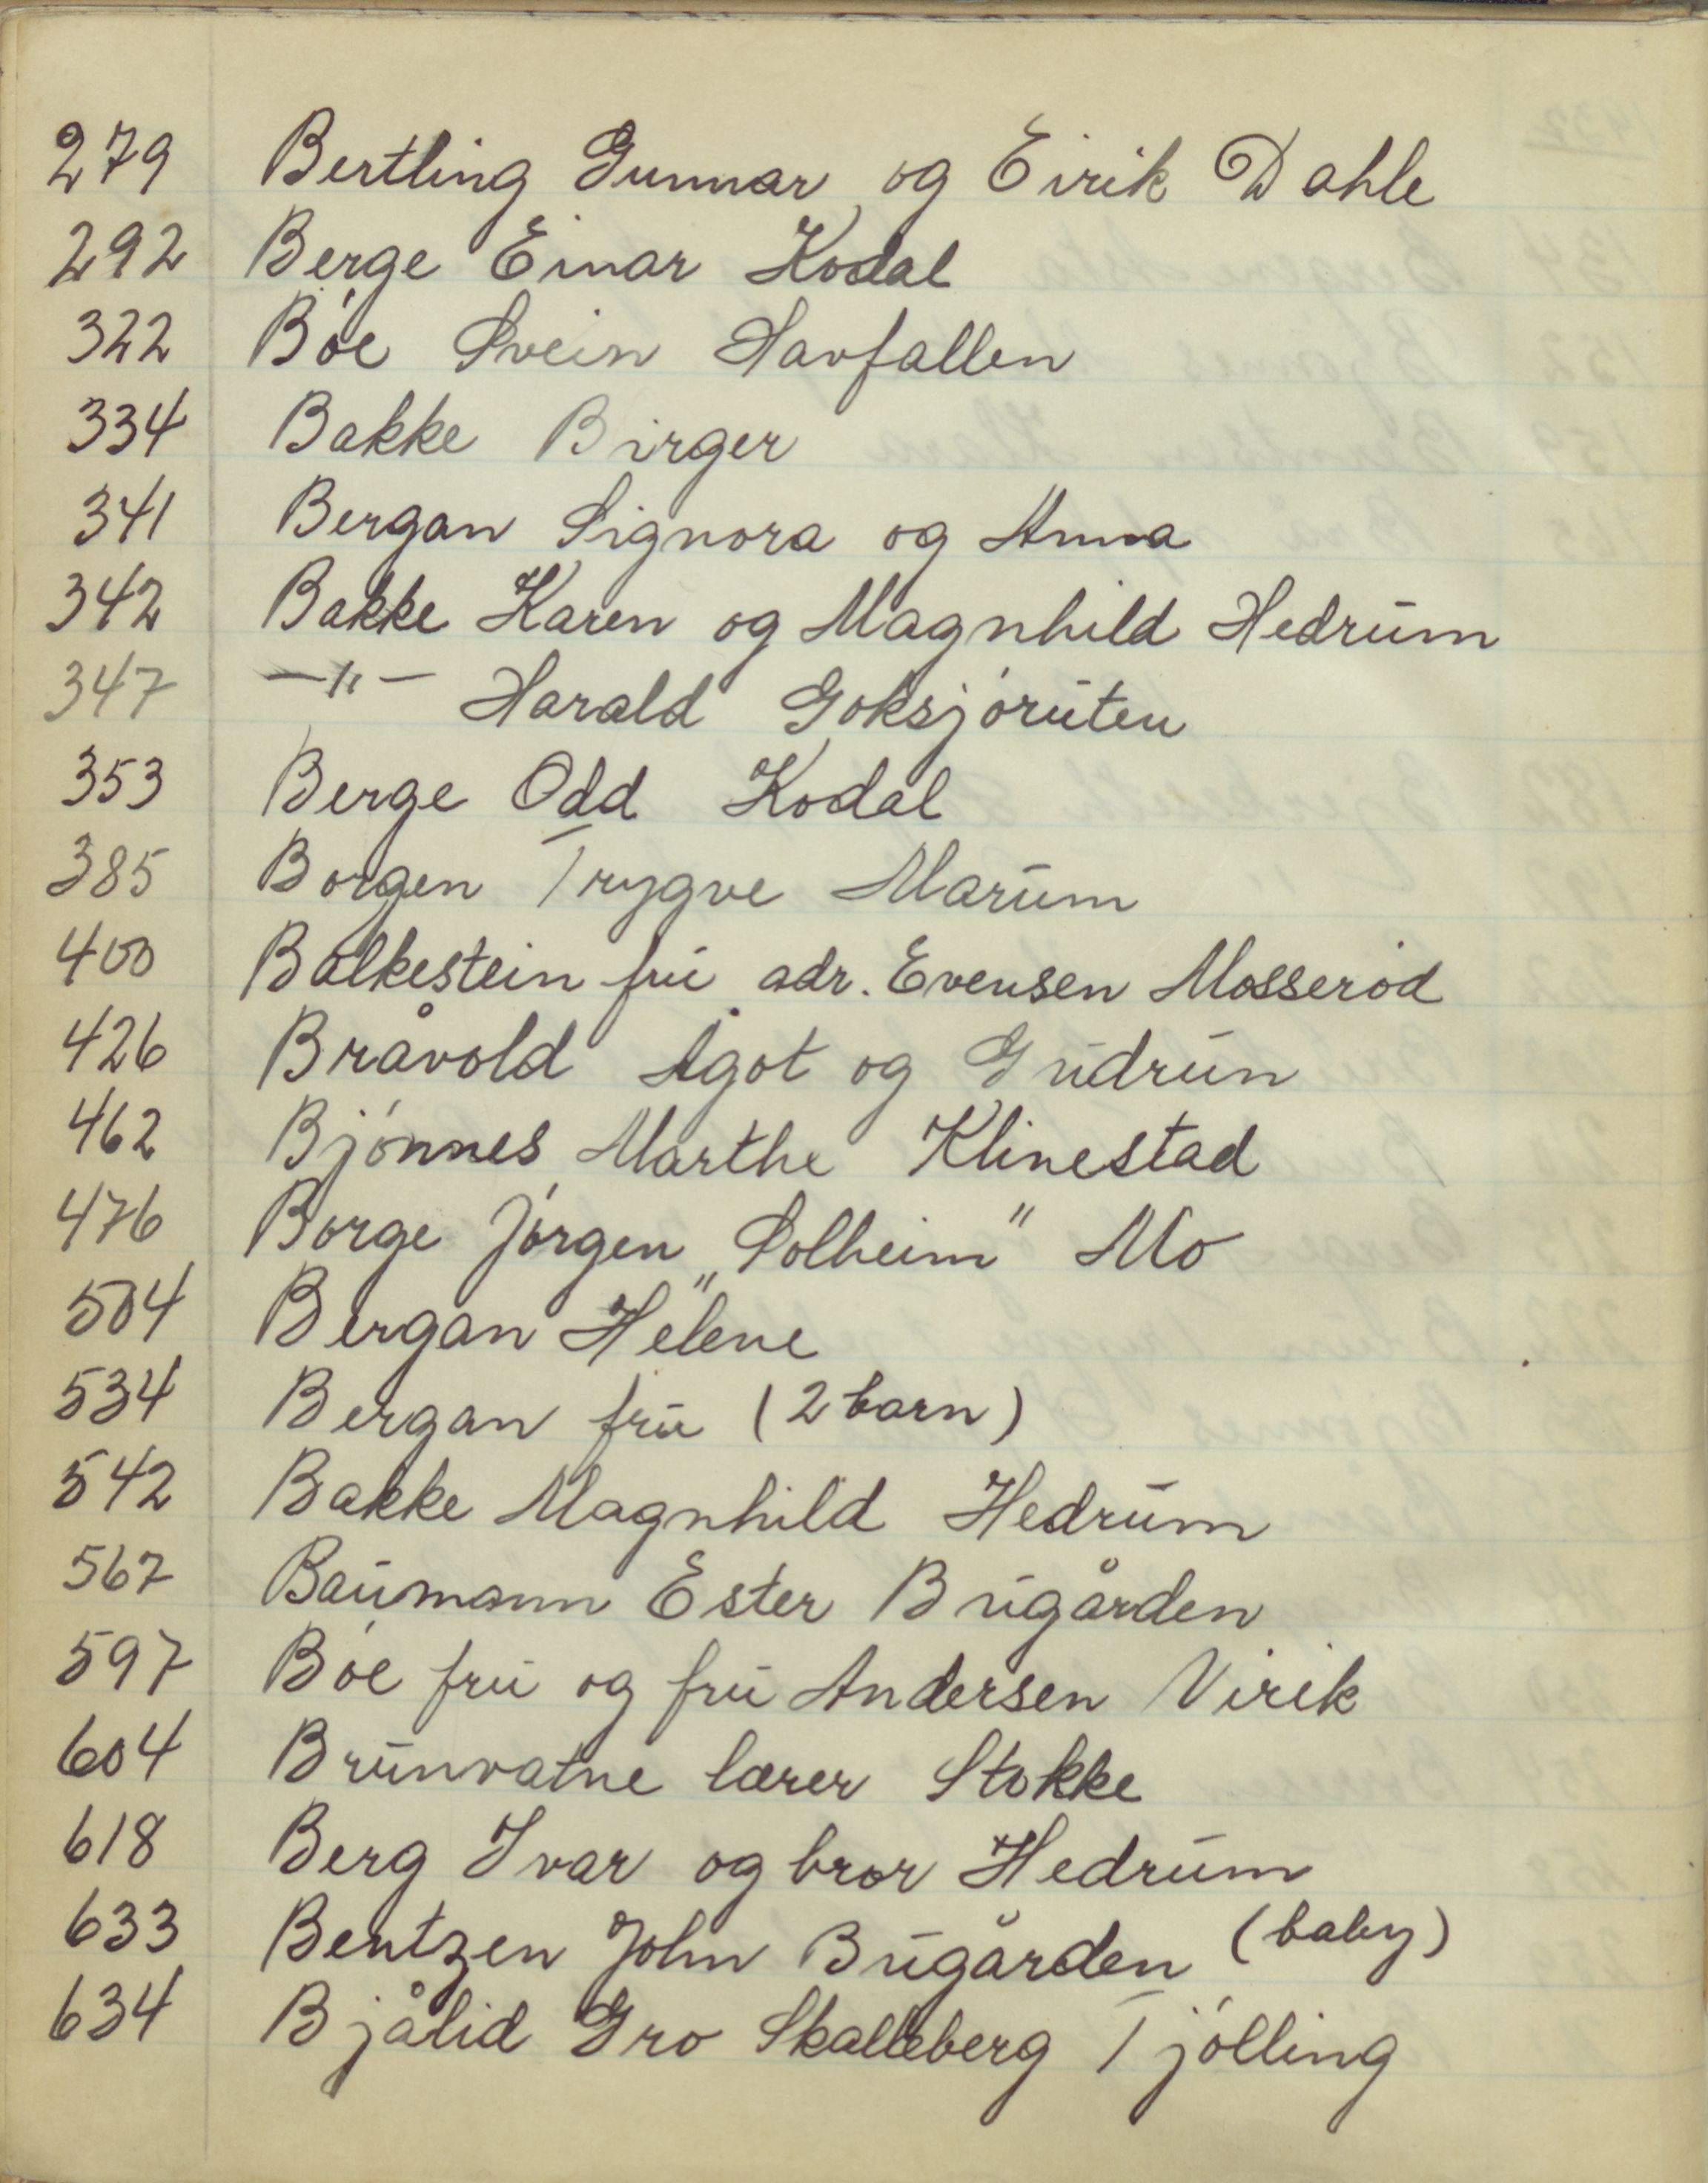 279 Bertling Gunnar og Eirik Dahle
292 Berge Einar Kodal
322 Bóe Svein Havfallen
334 Bakke Birger
341 Bergan Signora og Anna
342 Bakke Karen og Magnhild Hedrum
347 —"— Harald Goksjóruten
353 Berge Odd Kodal
385 Borgen Trygve Marum
400 Balkestein fru adr. Evensen Mosseród
426 Bråvold Ågot og Gudrun
462 Bjónnes Marthe Klinestad
476 Borge Jórgen „Solheim" Mo
504 Bergan "Helene
534 Bergan fru (2 barn)
542 Bakke Magnhild Hedrum
567 Baumann Ester Bugården
597 Bóe fru og fru Andersen Virik
604 Brunvatne lærer Stokke
618 Berg Ivar og bror Hedrum
633 Bentzen John Bugården (baby)
634 Bjålid Gro Skalleberg Tjólling